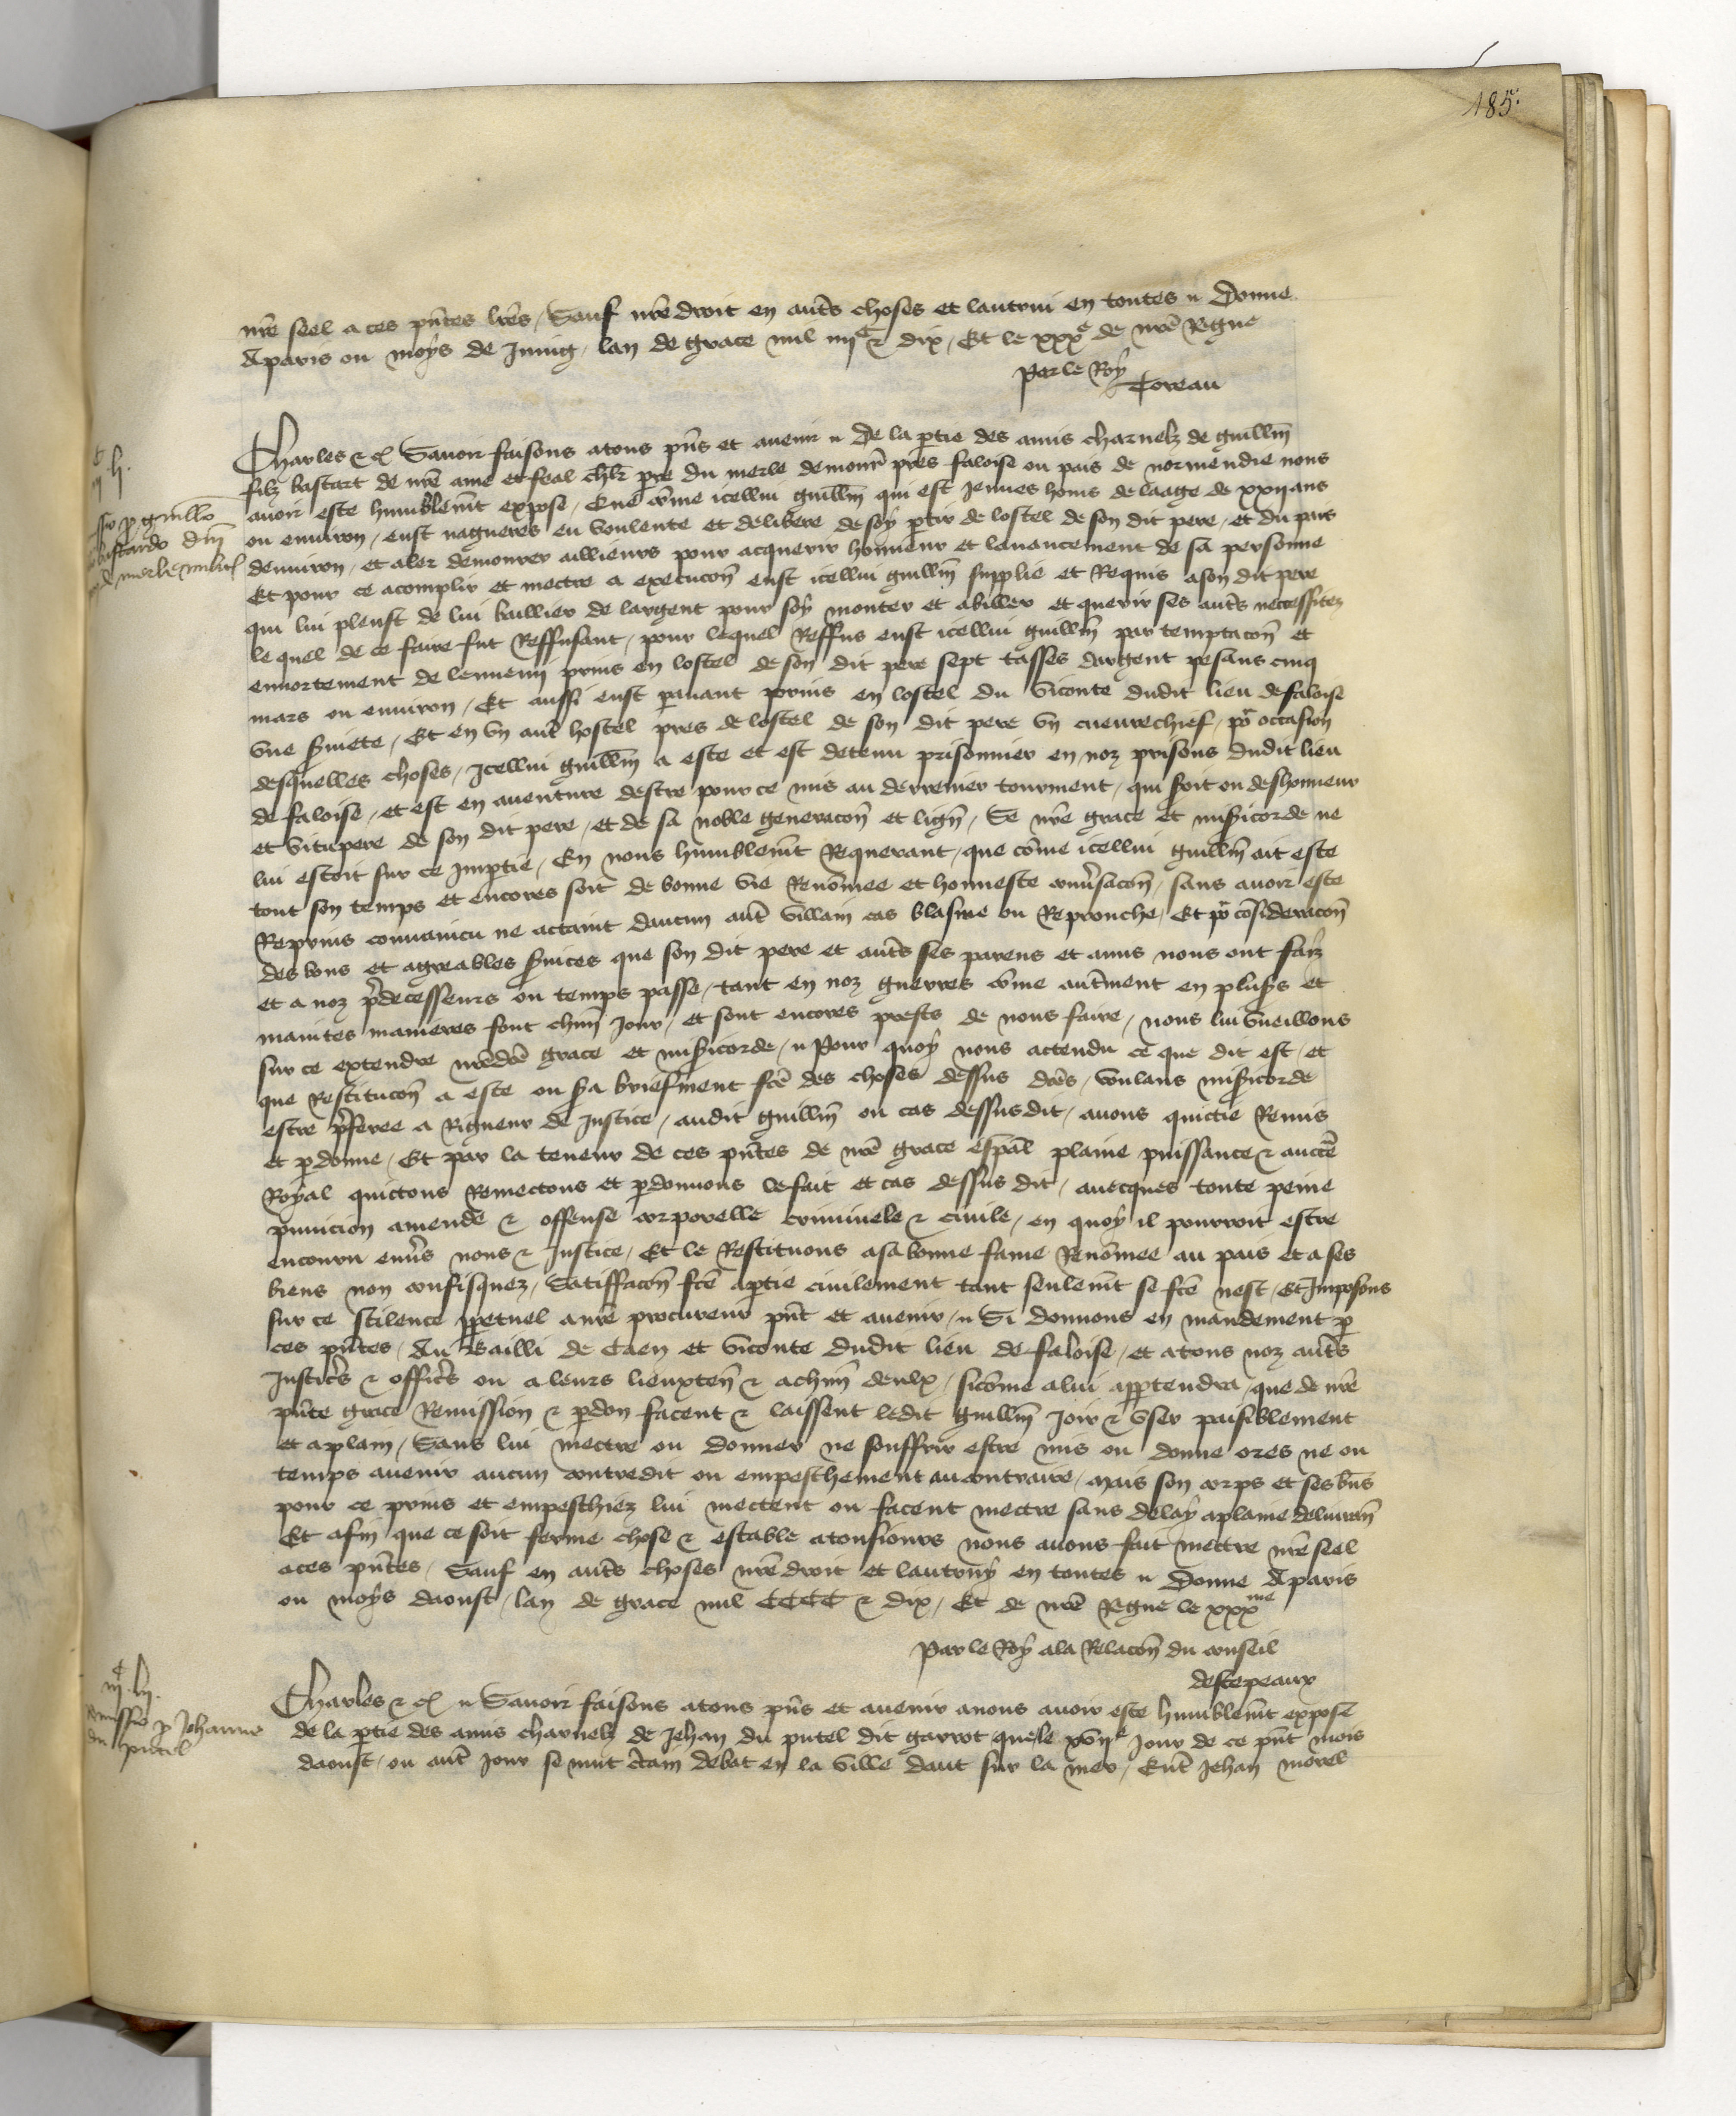 185.
nrē seel a ces pn̄tes lrēs / Sauf nrē droit en aut̄s choses et lautrui en toutes // Donne
A paris ou moys de Juing / lan de grace mil iiijᶜ & dix / Et le xxxᵉ de nrē Regne
Par le Roy
Toreau
Charles &c̄ Savoir faisons a tous pn̄s et avenir // De la ptie des amis charnelz de guillm̄
filz bastart de nrē ame et feal chlr̄ pr̄e du merle demour̄ pres faloise ou pais de normendie nous
avoir este humblemt̄ expose / Que cōme icellui guillm̄ qui est jeunes homs de laage de xxij ans
ou environ / eust nagueres eu voulente et delibere de soy ptir de lostel de son dit pere / et du pais
denviron / et aler demourer aillieurs pour acquerir honneur et lavancement de sa personne
Et pour ce acomplir et mectre a execucōn eust icellui guillm̄ supplie et Requis a son dit pere
qui lui pleust de lui baillier de largent pour soy monter et abiller et querir ses aut̄s neccessitez
le quel de ce faire fut Reffusant / pour lequel Reffus eust icellui guillm̄ par temptacōn et
ennortement de lennemi prins en lostel de son dit pere sept tasses dargent pesans cinq
mars ou environ / Et aussi eust pavant prins en lostel du viconte dudit lieu de faloise
une s̄viete / Et en vn aut̄ hostel pres de lostel de son dit pere vn cueuvrechief / po^r occasion
desquelles choses / Icellui guillm̄ a este et est detenu prisonnier en noz prisons dudit lieu
de faloise / et est en aventure destre pour ce mis au derrenier tourment / qui s̄oit ou deshonneur
et vitupere de son dit pere / et de sa noble generacōn et lign̄ / Se nrē grace et mis̄icorde ne
lui estoit sur ce Imptie / En nous humblemt̄ Requerant / que cōme icellui guillm̄ ait este
tout son temps et encores soit de bonne vie Renōmee et honneste conv̄sacōn / sans avoir este
Reprins convaincu ne actaint daucun aut̄ villain cas blasme ou Reprouche / Et po^r cōsideracōn
des bons et agreables s̄vices que son dit pere et aut̄s ses parens et amis nous ont faiz
et a noz p̄decesseurs ou temps passe / tant en noz guerres cōme aut̄ment en plus̄s et
maintes manieres font chūn jour / et sont encores prests de nous faire / nous lui vueillons
sur ce extendre nrēdc̄e grace et mis̄icorde // Pour quoy nous actendu ce que dit est / et
que Restitucōn a este ou s̄a briefment fc̄e des choses dessus dc̄es / voulans mis̄icorde
estre p̄feree a Rigueur de Justice / audit guillm̄ ou cas dessusdit / avons quictie Remis
et pdonne / Et par la teneur de ces pn̄tes de nrē grace esp̄al plaine puissance & auctē
Royal quictons Remectons et pdonnons le fait et cas dessus dit / avecques toute peine
punicion amende & offense corporelle criminele & civile / en quoy il pourroit estre
encouru env̄s nous & Justice / Et le Restituons a sa bonne fame Renōmee au pais et a ses
biens non confisquez / Satiffacōn fc̄e a ptie civilement tant seulemt̄ se fc̄e nest / Et Imposons
sur ce scilence ppetuel a nrē procureur pn̄t et avenir // Si donnons en mandement p
ces pn̄tes / Au Bailli de Caen et viconte dudit lieu de faloise / et a tous noz aut̄s
Justic̄s & offic̄s ou a leurs lieuxten̄ & a chūn deulx / sicōme a lui apptendra / que de nrē
pn̄te grace Remission & pdon facent & laissent ledit guillm̄ joir & vser paisiblement
et a plain / Sans lui mectre ou donner ne souffrir estre mis ou donne ores ne ou
temps avenir aucun contredit ou empeschement au contraire / Mais son corps et ses bn̄s
pour ce prins et empeschiez lui mectent ou facent mectre sans delay a plaine delivran̄
Et afin que ce soit ferme chose & estable a tousiours nous avons fait mectre nrē seel
a ces pn̄tes / Sauf en aut̄s choses nrē droit et lautruy en toutes // Donne A paris
ou moys daoust / lan de grace mil CCCC & dix / Et de nrē Regne le xxxᵐᵉ
Par le Roy a la Relacōn du conseil
destepeaux
Charles &c̄ // Savoir faisons a tous pn̄s et avenir a nous avoir este humblemt̄ expose
de la ptie des amis charnelz de Jehan du putel dit garrot que le xviiᵉ jour de ce pn̄t mois
daoust / ou aut̄ jour se mut c̄tain debat en la ville daut sur la mer / Ent̄ Jehan morel
p guill̄o
bastardo dn̄i
de merle milit̄
p Johanne
du putel